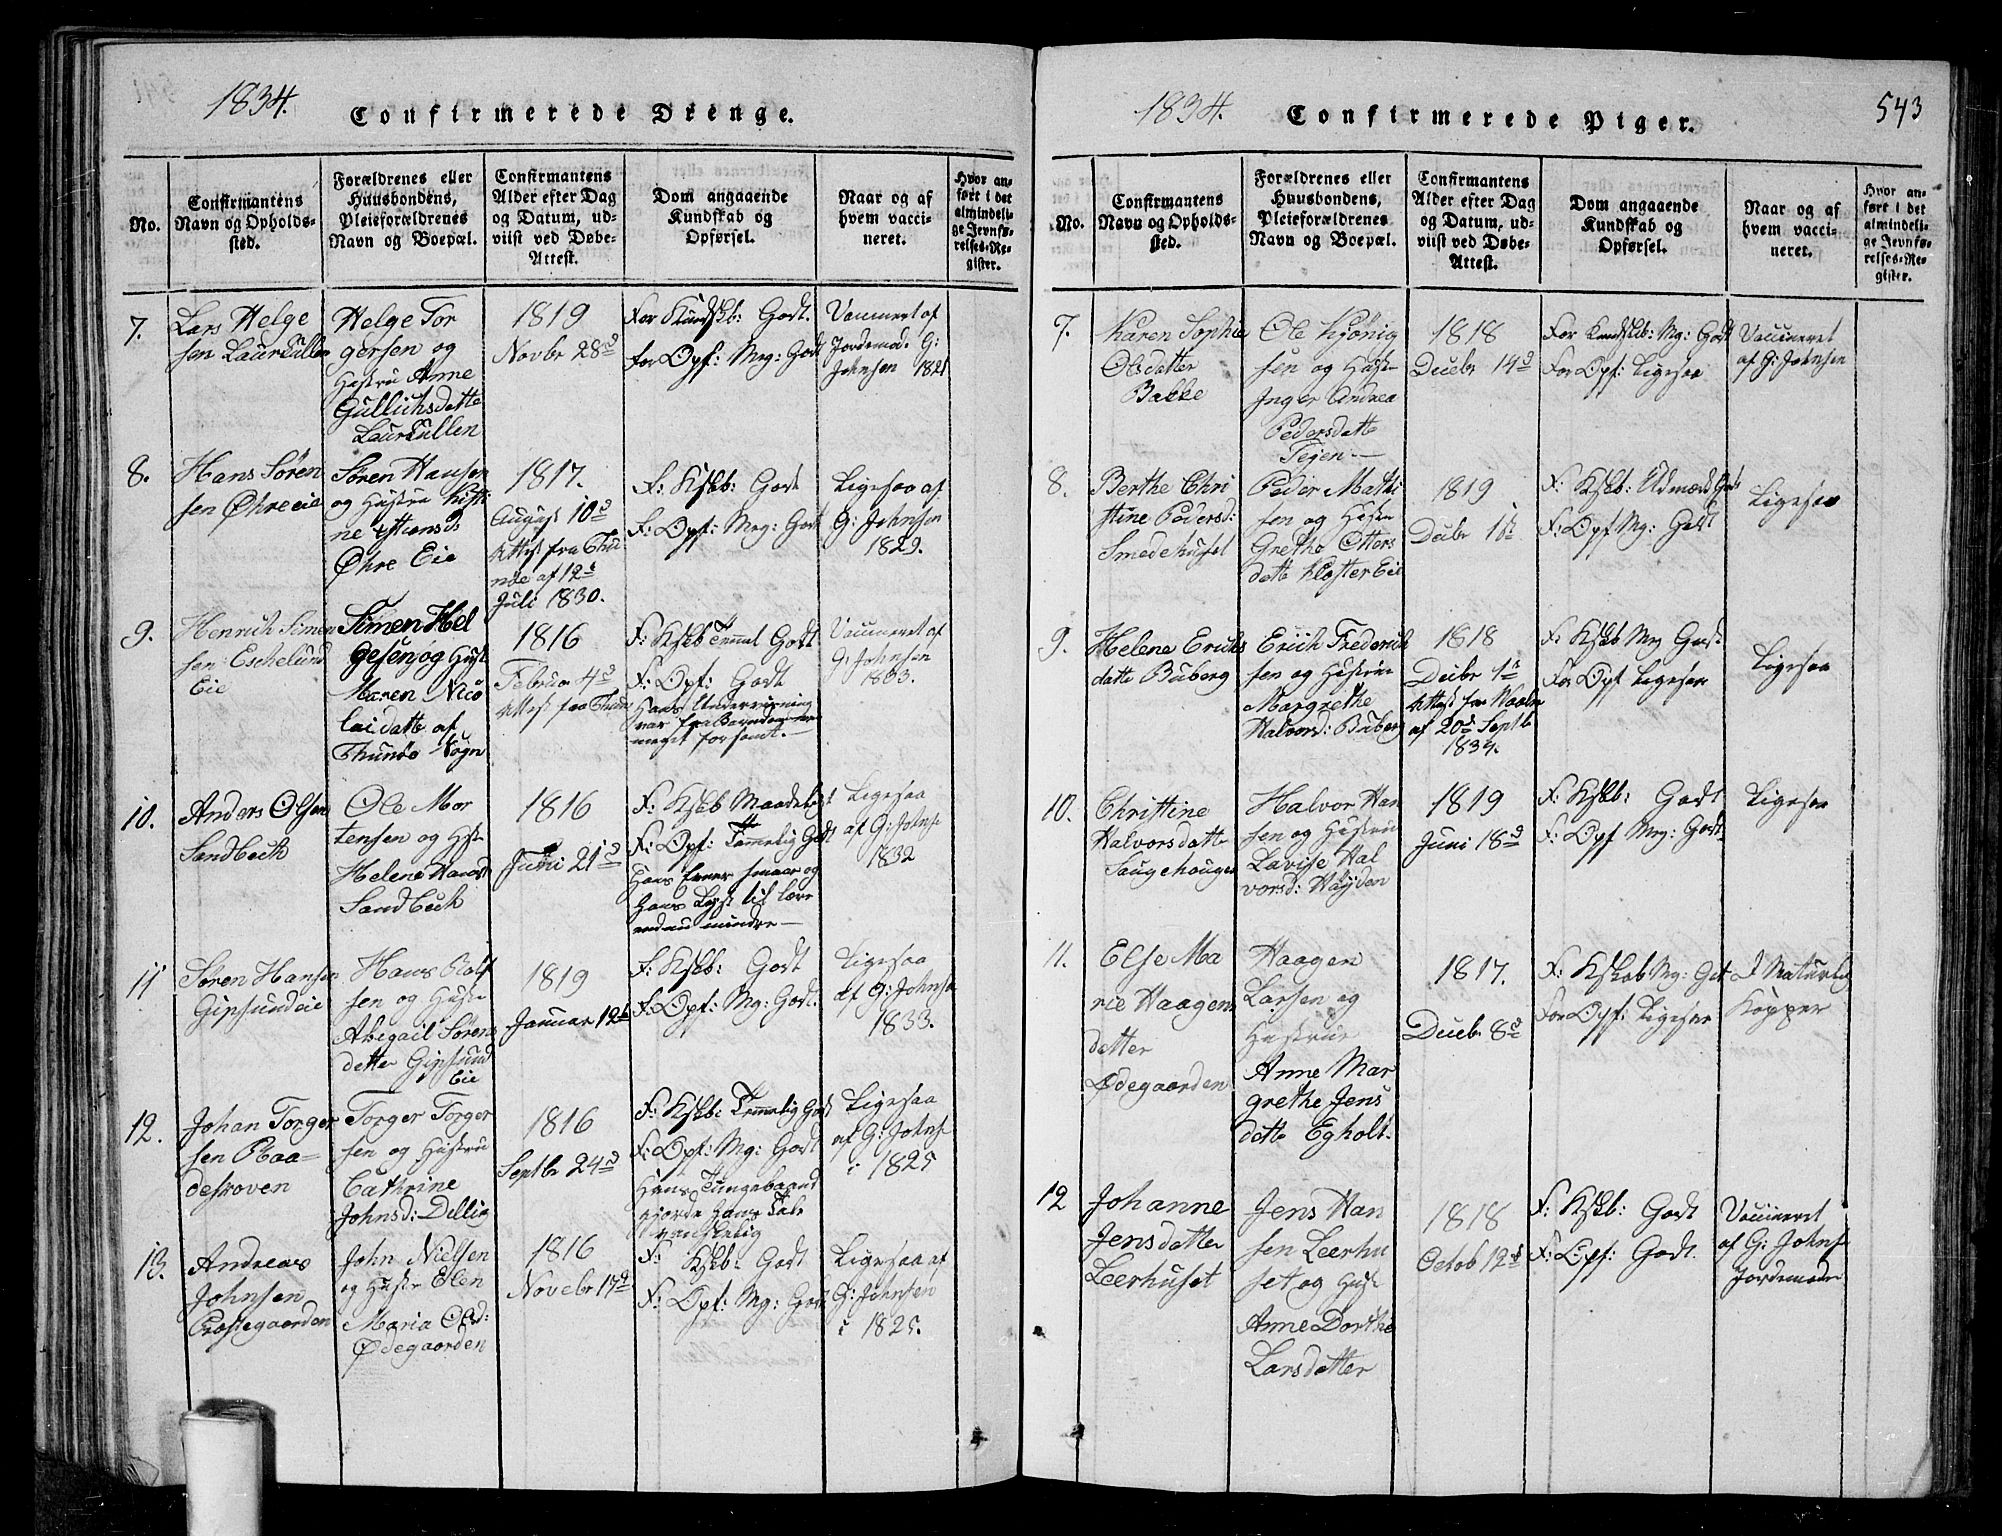 1834.
Confirmerede Drenge.
No.
Confirmantens
Navn og Opholds-
sted.
Forældrenes eller
Huusbondens,
Pleieforældrenes
Navn og Boepæl.
Confirmantens
Alder efter Dag
og Datum, ud-
viist ved Døbe-
Attest.
Dom angaaende
Kundskab og
Opførsel.
Naar og af
hvem vacci-
neret.
Hvor an-
ført i det
almindeli-
ge Jevnfø-
relses-Re-
gister.
7.
Lars Helge
sen Laurkullen
Helge Tor
gersen og
Hustru Anne
Gullichsdatte
Laurkullen
1819
Novbr 28d
For Kundskb: Godt.
for Opf: Mg: Godt
Vaccineret af
Jordemod. G:
Johnsen 1821
8.
Hans Søren
sen Øhre eie
Søren Hansen
og Hustru
Øhre Eie
1817.
August 10d
Attest fra Thu
nøe af 12t
Juli 1830.
F: Kskb: Godt
F: Opf: Mg: Godt
Ligesaa af
G: Johnsen
1829.
9.
Henrich Simen
sen Eschelund
Eie
Simen Hel
gesen og Hust
Maren Nico
laidatte af
Thunøe Sogn
1816
Februar 4d
Attest fra Thunø
F: Kskb Godt
F: Opf: Godt
Hans Underviisning
var fra Barndommen
meget forsømt.
Vaccineret af
G: Johnsen
1833.
10.
Anders Olsen
Sandbech
Ole Mor
tensen og Hust
Helene Hansd
Sandbech
1816
Juni 21d
F: Kskb Maadeligt
F: Opf: Temmelig Godt
Hans Evner smaae og
Hans Lyst til lære
endnu mindre
Ligesaa
af G: Johns
1832
11
Søren Hansen
Gipsund eie
Hans Rolf
sen og Hustru
Abigail Sørens
datter Gipsund
Eie
1819
Januar 12t
F: Kskb: Godt
F: Opf: Mg: Godt.
Ligesaa
af G: Johnsen
1833.
12.
Johan Torger
sen Raa-
deskoven
Torger Torger
sen og Hustru
Cathrine
Johnsd: Dilling
1816
Septbr 24d
F: Kskb: Temmelig Godt
F: Opf: Mg: Godt
Hans Tungebaand
gjorde hans Tale
vanskelig
Ligesaa
af G: Johns
i 1825
13.
Andreas
Johnsen
Præstegaarden
John Nielsen
og Hustru Elen
Maria Olsd:
Ødegaarden
1816
Novebr 17d
F: Kskb: Godt
F: Opf: Mg: Godt
Ligesaa af
G: Johnsen
i 1825.
1834.
Confirmerede Piger.
543
No.
Confirmantens
Navn og Opholds-
sted.
Forældrenes eller
Huusbondens,
Pleieforældrenes
Navn og Boepæl.
Confirmantens
Alder efter Dag
og Datum, ud-
viist ved Døbe-
Attest.
Dom angaaende
Kundskab og
Opførsel.
Naar og af
hvem vacci-
neret.
Hvor an-
ført i det
almindeli-
ge Jevnfø-
relses-Re-
gister.
7.
Karen Sophie
Olsdatter
Bakke
Ole Kjønig
sen og Hust
Inger Andrea
Pedersdatte
Tejen
1818
Decbr 14d
For Kundskb: Mg: Godt
For Opf: Ligesaa
Vaccineret
af G: Johnsen
8.
Berthe Chri
stine Pedersd:
Smedehuset
Peder Mathi
sen og Hustru
Grethe Otters
datte Kloster Eie
1819
Decbr 1st
F: Kskb: Udmærk Godt
F: Opf Mg: Godt
Ligesaa
9.
Helene Erichs
datte Buberg
Erich Frederich
sen og Hustrue
Margrethe
Halvorsd: Buberg
1818
Decbr 1st
Attest fra Waaler
af 20d Septb
1834.
F: Kskb Mg Godt.
For Opf Ligesaa
Ligesaa
10.
Christine
Halvorsdatte
Saugehougen
Halvor Han
sen og Hustrue
Lavise Hal
vorsd: Høyden
1819
Juni 18d
F: Kskb: Godt
F: Opf Mg: Godt.
Ligesaa
11.
Else Ma
rie Haagens
datter
Ødegaarden
Haagen
Larsen og
Hustrue
Anne Mar
grethe Jens
datte Egholt.
1817.
Decbr 8d
F: Kskab Mg: Gdt
For Opf: Ligesaa
D Naturlig
Kopper
12
Johanne
Jensdatter
Leerhuset
Jens Han
sen Leerhu
set og Hust
Anne Dorthe
Larsdatter
1818
Octob 12t
F: Kskb: Godt
F: Opf: Godt.
Vaccineret
af G: Johns
Jordemoder